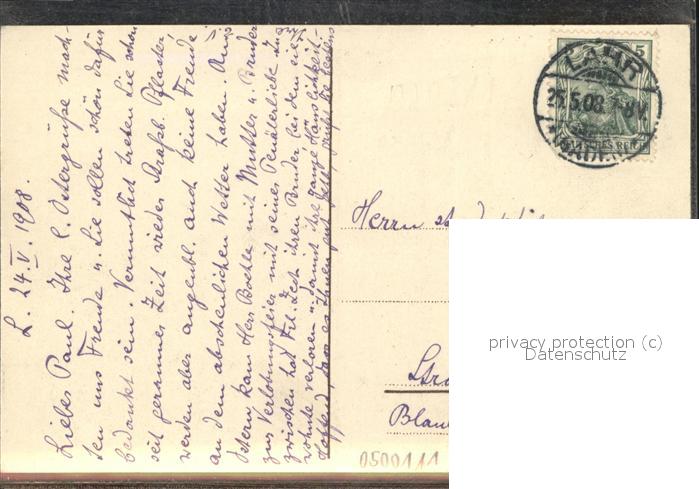 L. 24. V. 1908.
Liebes Paul. Ihre l. Ostergrüße mach-
ten uns Freude u. Sie sollen schön dafür
bedankt sein. Vermutlich treten Sie schon
seit geraumer Zeit wieder Strassb. Pflaster
werden aber augenbl. auch keine Freude
an dem abscheulichen Wetter haben. An
Ostern kam Herr Boehle mit Mutter u. Bruder
zur Verlobungsfeier mit seines Pendlerliebt. In-
zwischen hat Frl. Zest ihren Bruder bei dem sie
wohnte verloren u. damit ihre ganze Häuslichkeit.
Hoffend, dass es Ihnen gut geht
LAHR
25.5.08
5
DEUTSCHES REICH
Herrn
Stra
Blau
0500111
privacy protection (c)
Datenschutz